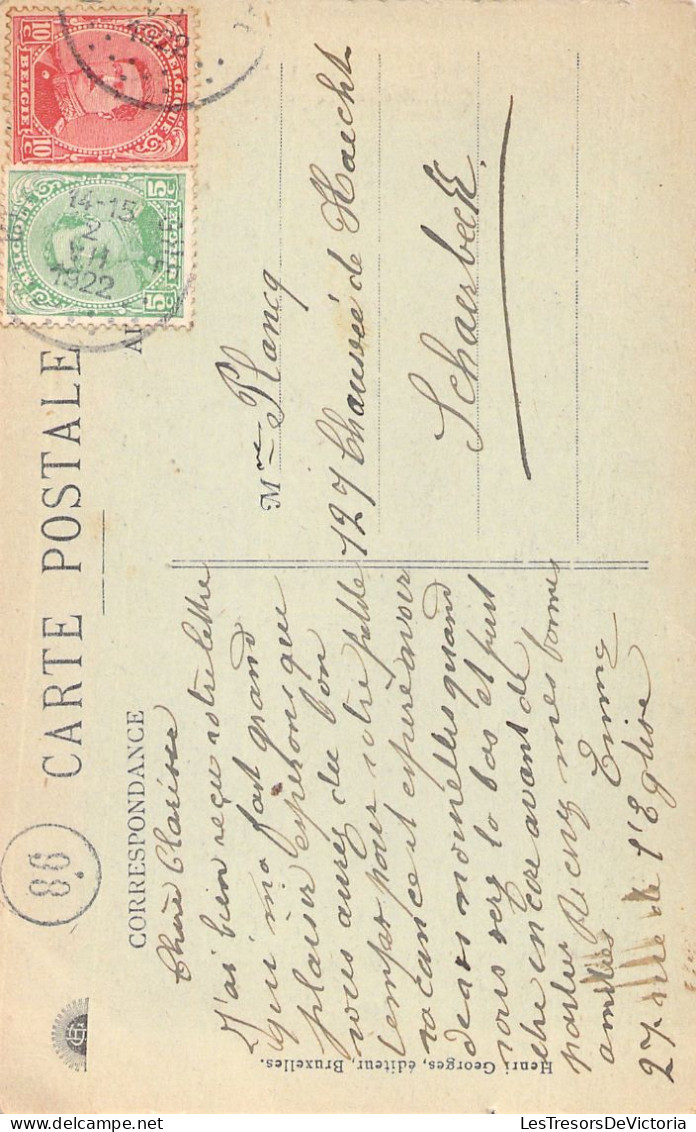 CARTE POSTALE
CORRESPONDANCE
Chère Clarisse
J'ai bien reçu votre lettre
qui m'a fait grand
plaisir esperons que
vous aurez du bon
temps pour votre petite
vacance et espère avoir
de vos nouvelles quand
vous serez la bas et puis
être encore avant de
partir Recevez mes bonnes
amitiés Emma
27 rue de l'Eglise
Mme Plancq
127 Chaussée de Haecht
Schaerbeek
Henri Georges, éditeur, Bruxelles.
98
BELGIQUE
BELGIE
10 C 10 C
1922
5 C 5 C
14-15
2
VII
1922
LesTresorsDeVictoria